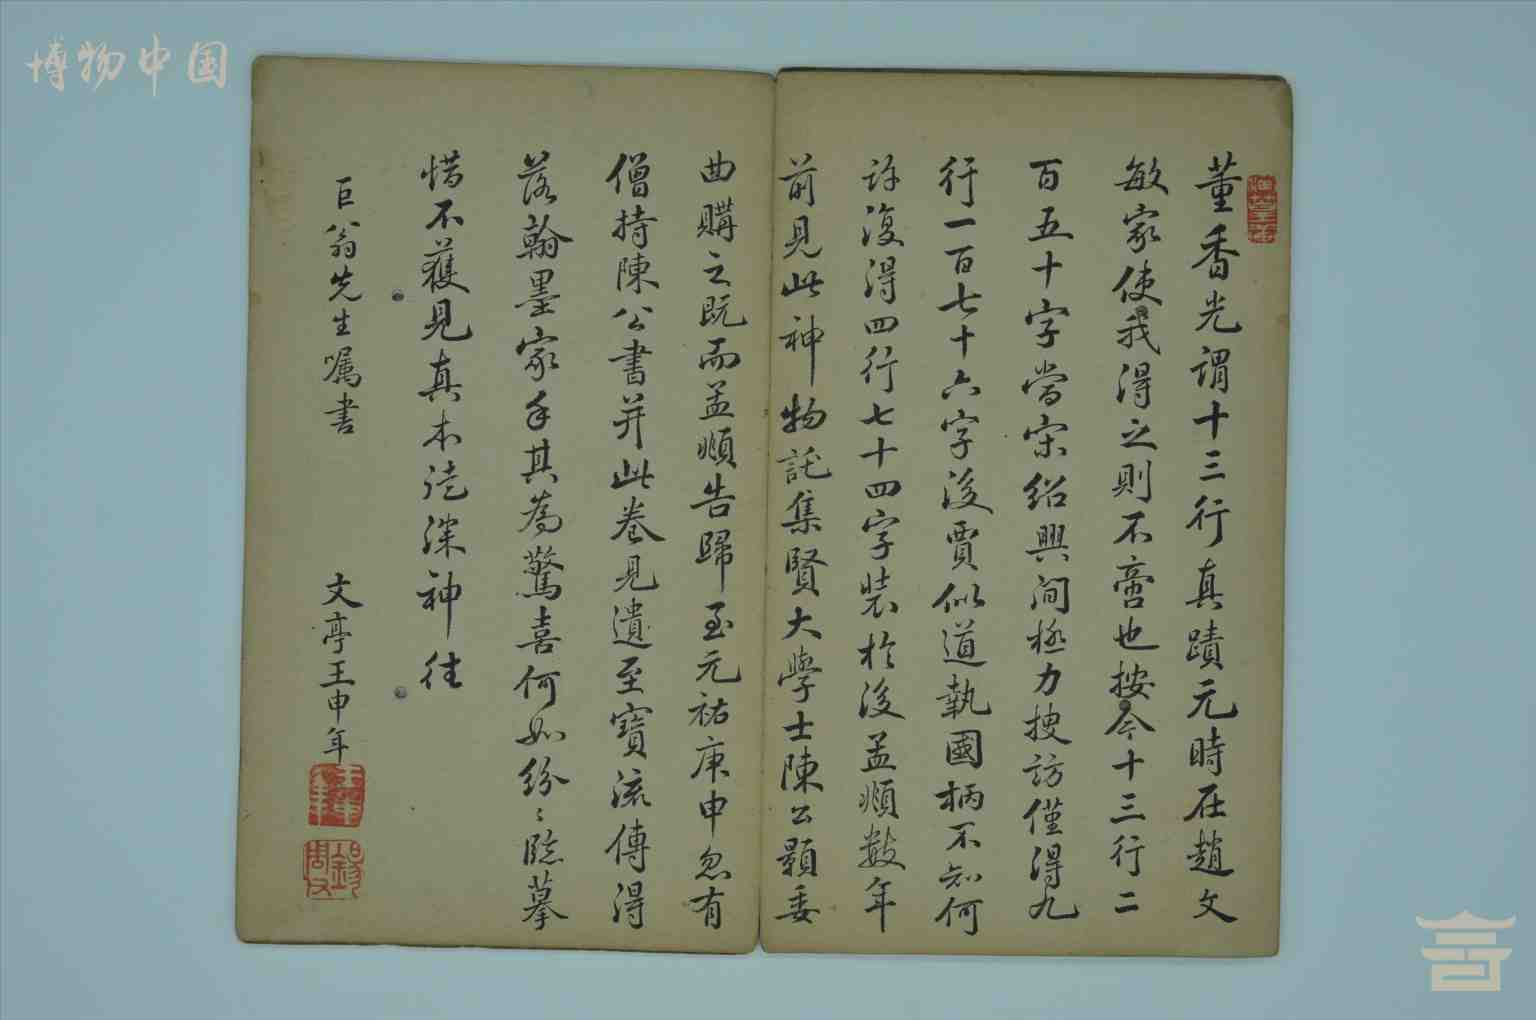 博物中国
董香光謂十三行真蹟元時在趙文
敏家使我得之則不啻也按今十三行二
百五十字當宋紹興间極力捜訪僅得九
行一百七十六字後賈似道執國柄不知何
許復得四行七十四字裝於後孟頫數年
前見此神物託集賢大學士陳公顥委
曲購之既而孟頫告歸至元祐庚申忽有
僧持陳公書并此卷見遺至寶流傳得
落翰墨家手其為驚喜何如紛〻臨摹
惜不獲見真本徒深神往
巨翁先生嘱書
文亭王申年